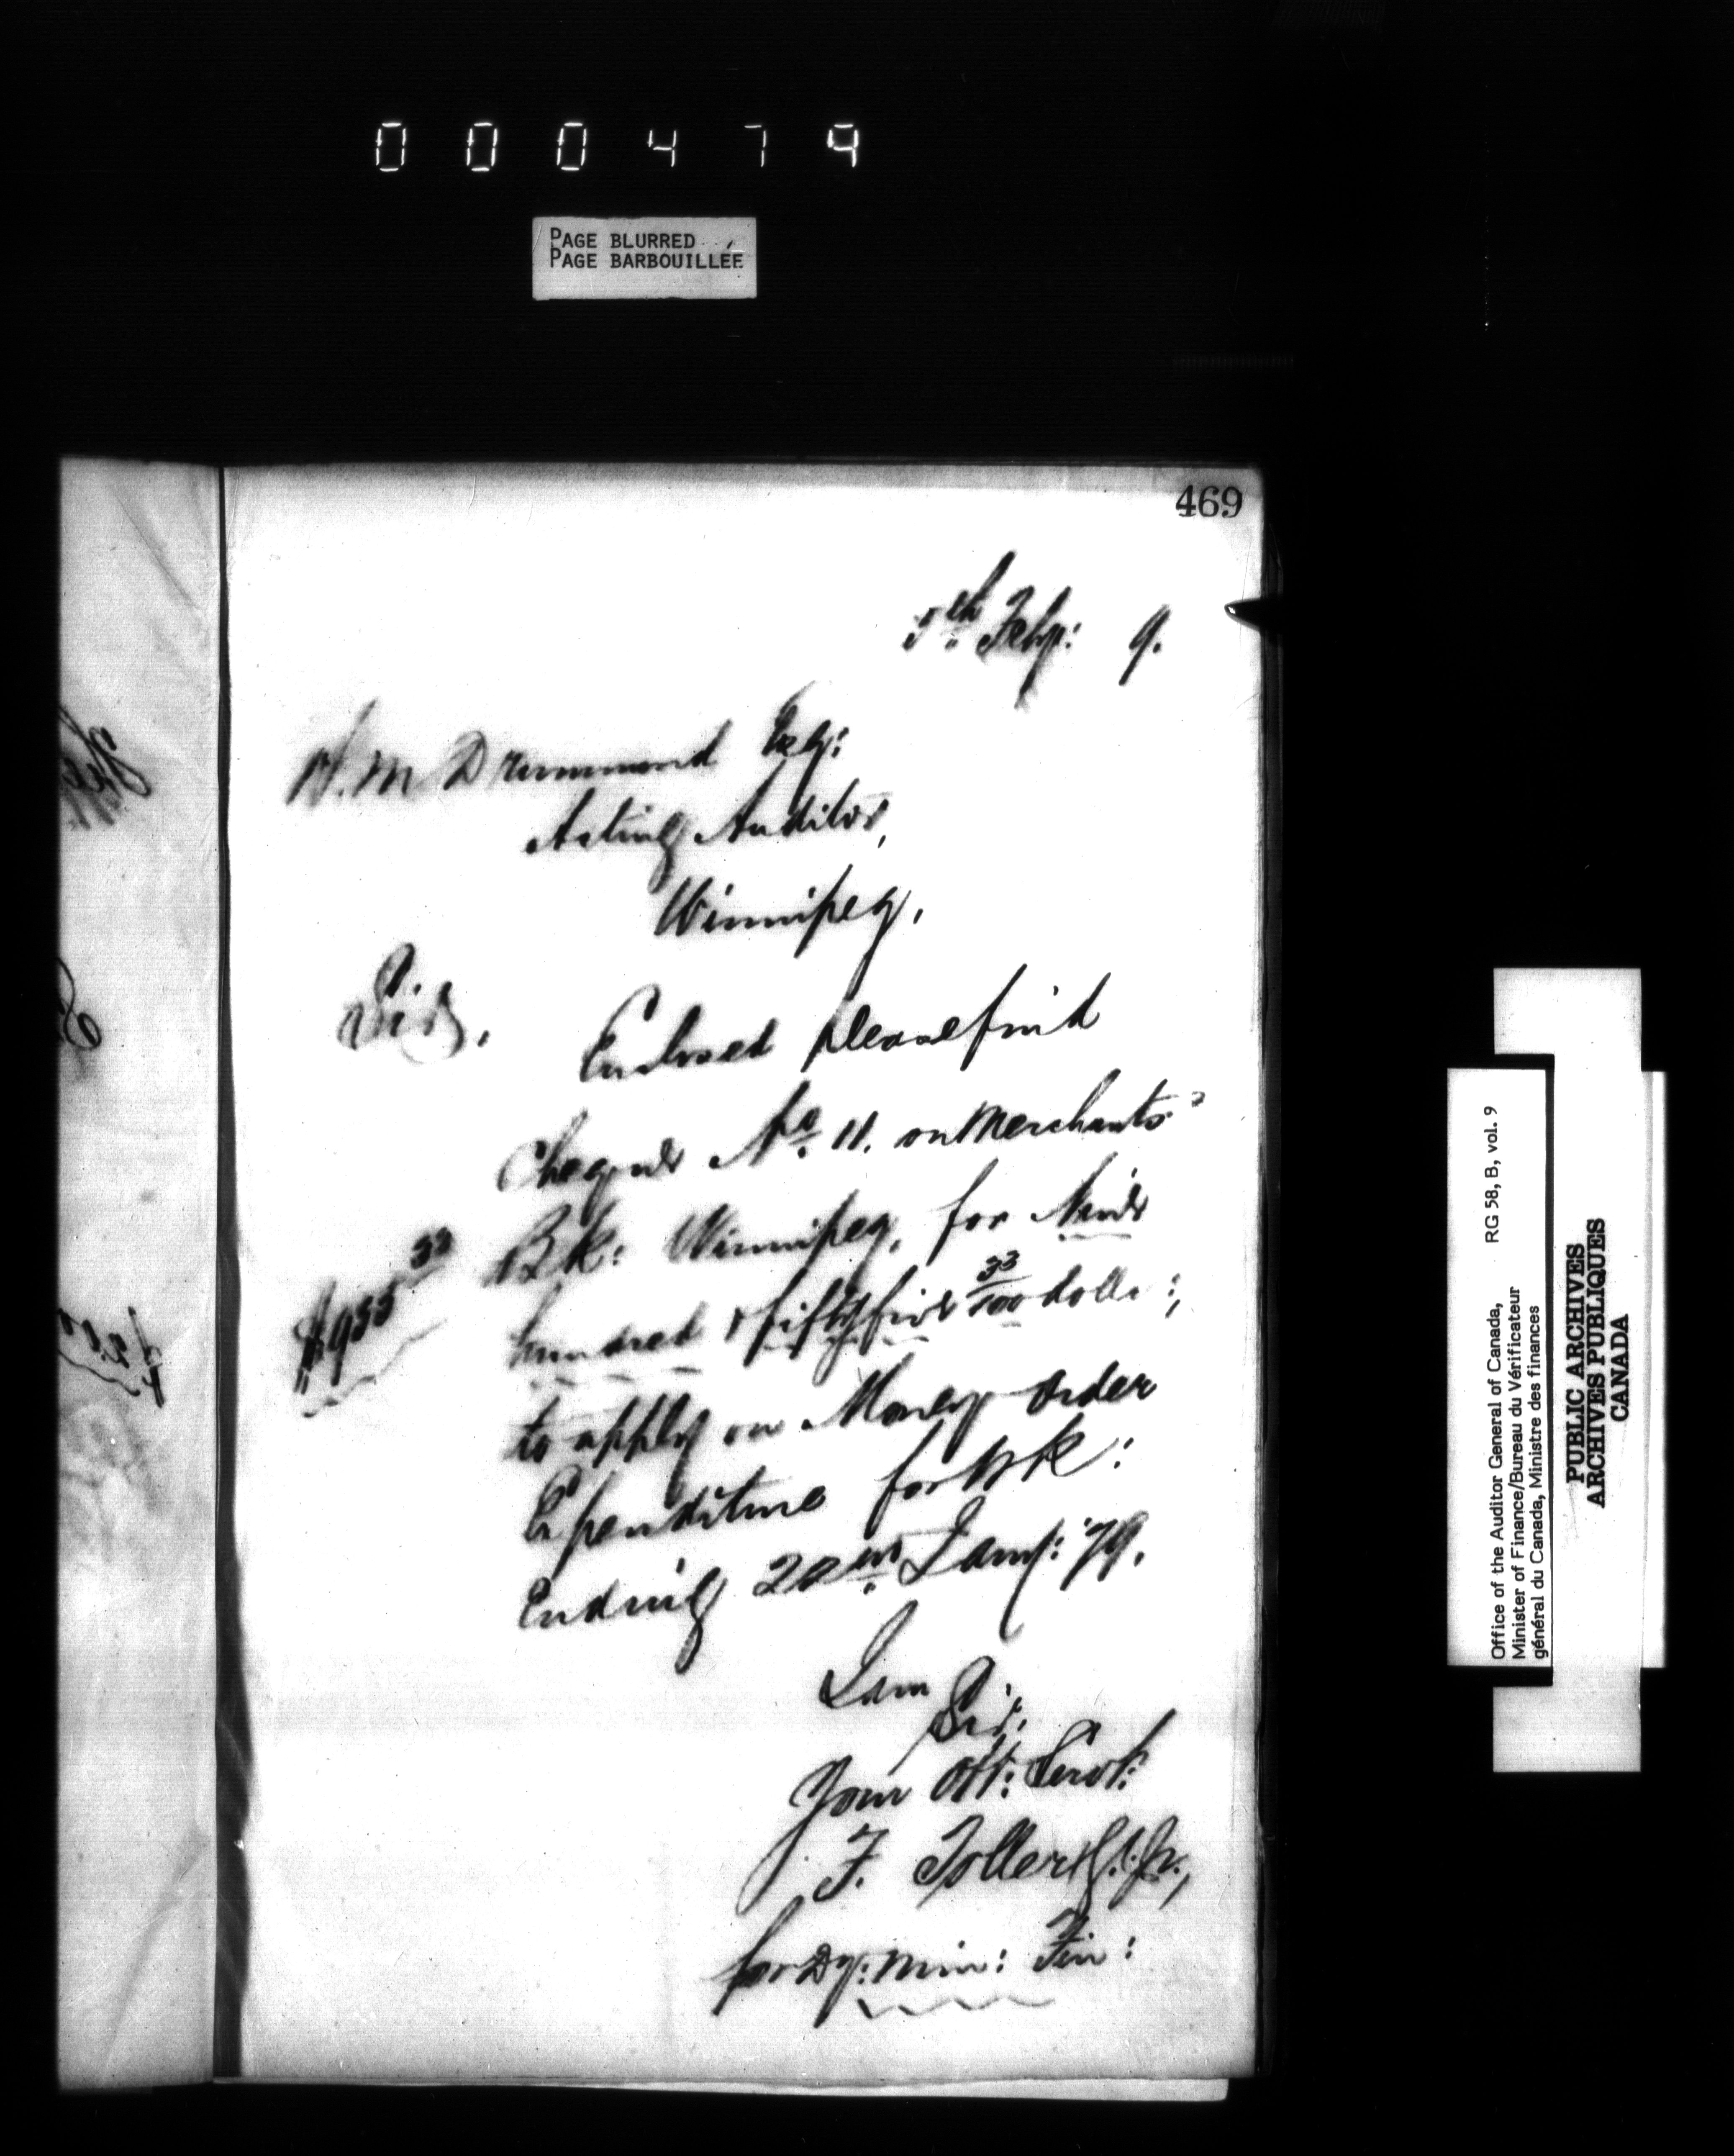 000479
PAGE BLURRED
PAGE BARBOUILLÉE
469
5th Feby: 9.
H. M Drummond Esq:
Acting Auditor,
Winnipeg,
Sir,
Enclosed please find
Cheque No. 11. on Merchants'
Bk: Winnipeg, for Nine
$955 33
hundred & fifty five 33/100 dolls:,
to apply on Money Order
Expenditure for Wk:
Ending 20th Jany: '79.
I am
Sir,
Your Obt: Servt:
F. Toller
for Dy: Min: Fin:
Office of the Auditor General of Canada, RG 58, B, vol. 9
Minister of Finance/Bureau du Vérificateur
général du Canada, Ministre des finances
PUBLIC ARCHIVES
ARCHIVES PUBLIQUES
CANADA